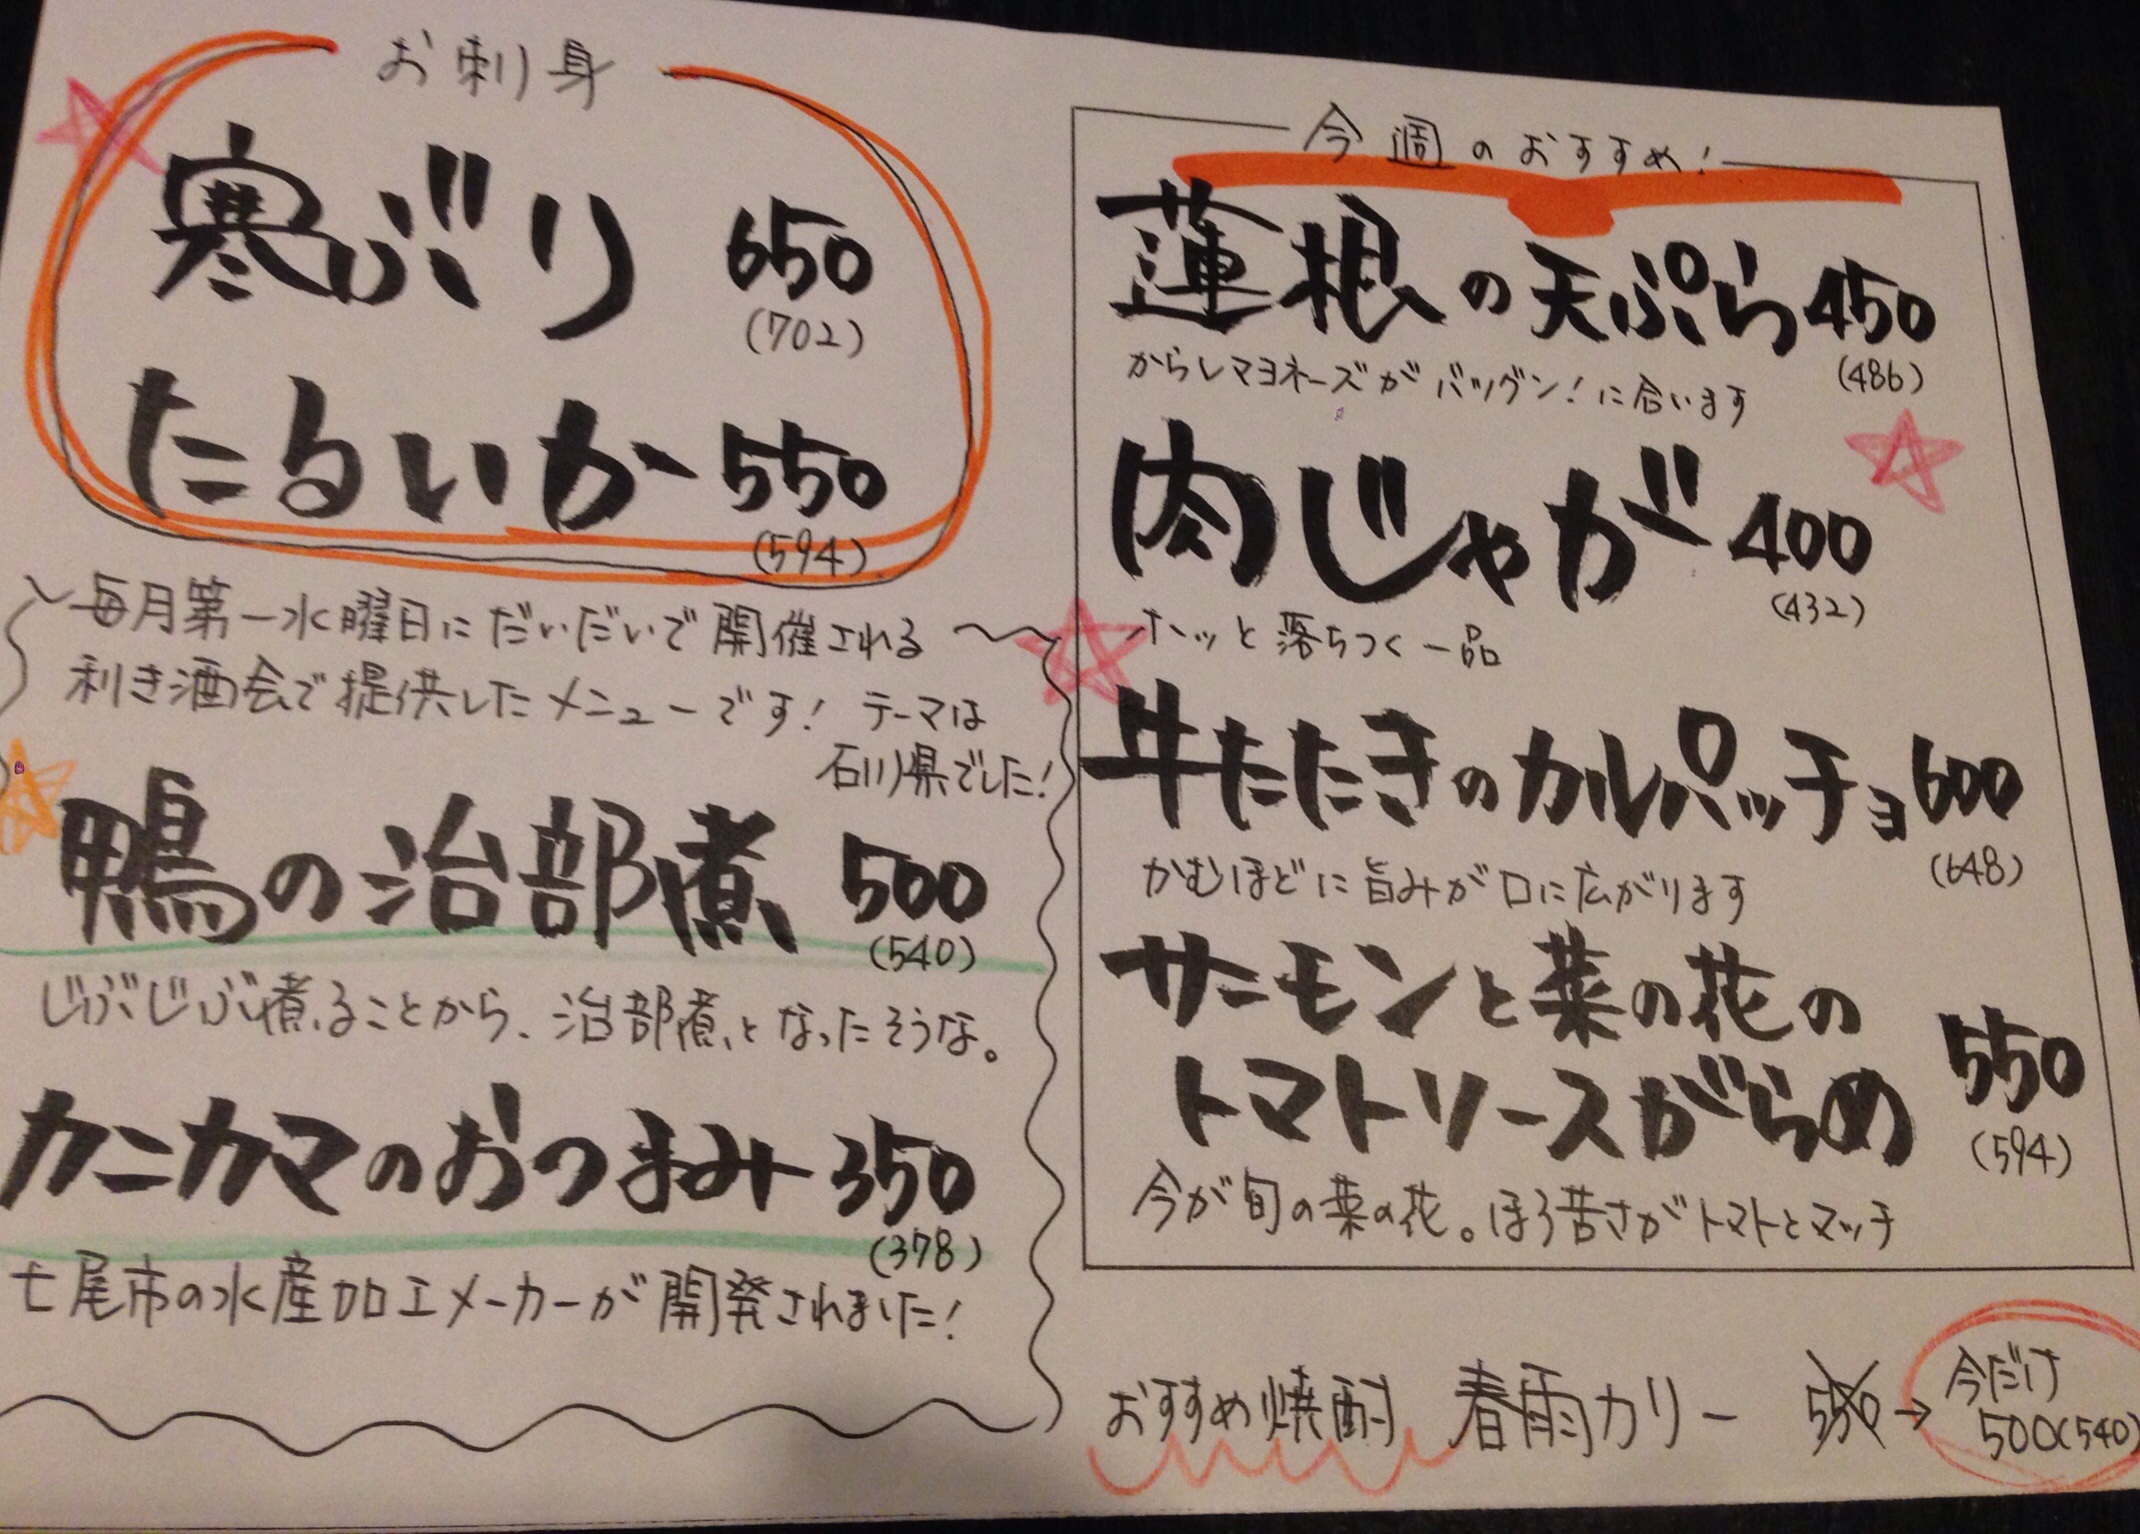 お刺身
寒ぶり 650
(702)
たるいか 550
(594)
毎月第一水曜日にだいだいで開催される
利き酒会で提供したメニューです! テーマは
石川県でした!
鴨の治部煮 500
(540)
じぶじぶ煮ることから、治部煮となったそうな。
カニカマのおつまみ 350
(378)
七尾市の水産加工メーカーが開発されました!
今週のおすすめ!
蓮根の天ぷら 450
(486)
からしマヨネーズがバツグン!に合います
肉じゃが 400
(432)
ホッと落ちつく一品
牛たたきのカルパッチョ 600
(648)
かむほどに旨みが口に広がります
サーモンと菜の花の
トマトソースがらめ 550
(594)
今が旬の菜の花。ほろ苦さがトマトとマッチ
おすすめ焼酎 春雨カリー 550→今だけ
500(540)